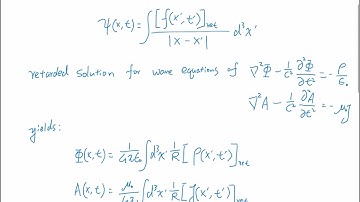 Ψ(x,t) = ∫ [f(x',t')]ret / |x - x'| d³x'
retarded solution for wave equations of ∇²Φ - 1/c² ∂²Φ/∂t² = - ρ/ε₀
∇²A - 1/c² ∂²A/∂t² = -μ₀J
yields:
Φ(x,t) = ∫d³x' 1/R [ρ(x',t')]ret
A(x,t) = ∫d³x' 1/R [J(x',t')]ret